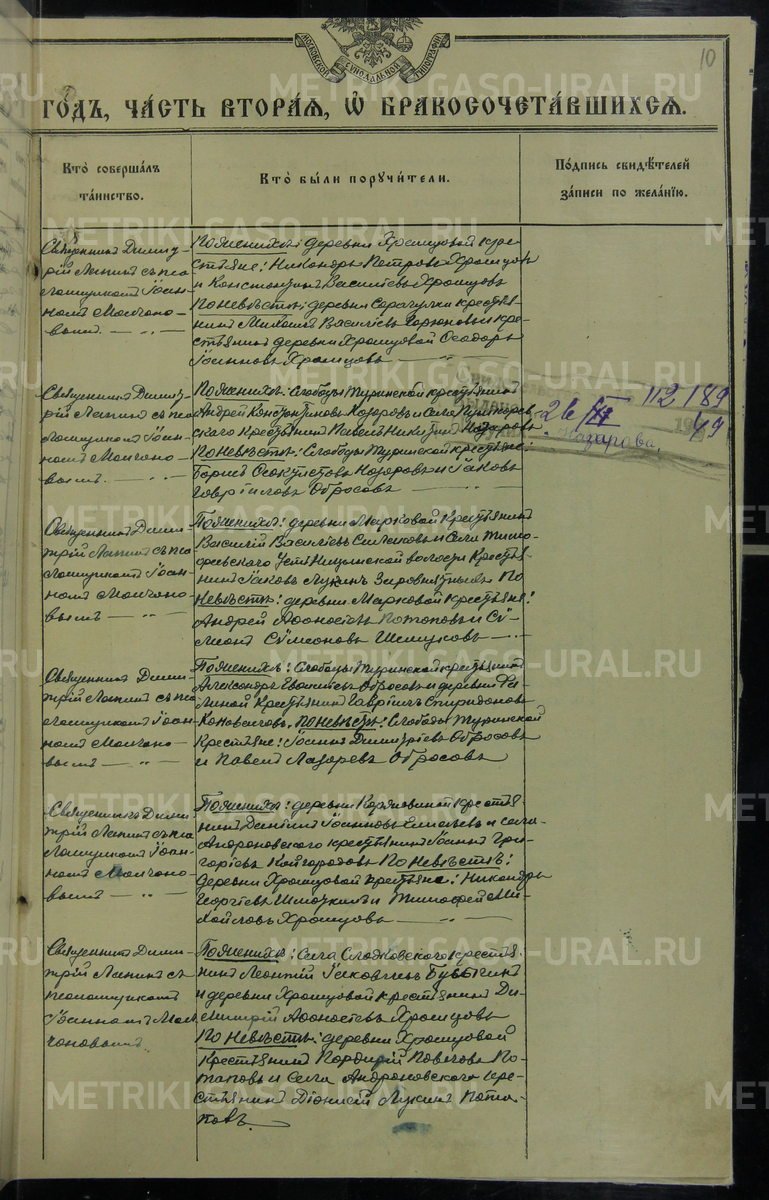 МОСКОВСКОЙ СѴНОДАЛЬНОЙ ТИПОГРАФІИ
10
ГОДЪ, ЧАСТЬ ВТОРАЯ, Ѡ БРАКОСОЧЕТАВШИХСЯ.
Кто совершалъ
таинство.
Кто были поручители.
Подпись свидѣтелей
записи по желанію.
Священникъ Димит-
рій Лапинъ съ пса
ломщикомъ Іоан-
номъ Молчано-
вымъ.
По женихѣ: деревни Храмцовой кре-
стьяне: Никандръ Петровъ Храмцовъ
и Константинъ Васильевъ Храмцовъ
По невѣстѣ: деревни крестья-
нинъ Михаилъ Васильевъ и кре-
стьянинъ деревни Храмцовой Ѳеодоръ
Іоанновъ Храмцовъ
Священникъ Димит-
рій Лапинъ съ пса
ломщикомъ Іоан-
номъ Молчано-
вымъ.
По женихѣ: Слободы Туринской крестьянинъ
Андрей Константиновъ Назаровъ и села
скаго крестьянинъ Павелъ Никитинъ Назаровъ
По невѣстѣ: Слободы Туринской крестьяне:
Борисъ Назаровъ и Іаковъ
Гавріиловъ Обросовъ
26 VI
112189
49
Назарова.
Священникъ Дими-
трій Лапинъ съ пса
ломщикомъ Іоан-
номъ Молчано-
вымъ
По женихѣ: деревни Марковой крестьянинъ
Василій Васильевъ и села Тимо-
феевскаго Усть Ницинской волости крестья-
нинъ Іаковъ Лукинъ По
невѣстѣ: деревни Марковой крестьяне:
Андрей Аѳонасьевъ Потаповъ и Сѵ-
меонъ Сѵмеоновъ
Священникъ Дими-
трій Лапинъ съ пса
ломщикомъ Іоан-
номъ Молчано-
вымъ
По женихѣ: Слободы Туринской крестьянинъ
Александръ Обросовъ и деревни Фа-
линой крестьянинъ Гавріилъ Спиридоновъ
Коноваловъ. По невѣстѣ: Слободы Туринской
крестьяне: Іоаннъ Димитріевъ Обросовъ
и Павелъ Лазаревъ Обросовъ
Священникъ Дими-
трій Лапинъ съ пса
ломщикомъ Іоан-
номъ Молчано-
вымъ
По женихѣ: деревни крестья-
нинъ Даніилъ Іоанновъ и села
Андроновскаго крестьянинъ Іоаннъ Гри-
горіевъ Кайгородовъ По невѣстѣ:
деревни Храмцовой крестьяне: Никандръ
Георгіевъ и Тимофей Ми-
хайловъ Храмцовы
Священникъ Дими-
трій Лапинъ съ
псаломщикомъ
Іоанномъ Мол-
чановымъ.
По женихѣ: Села Сладковскаго крестья-
нинъ Леонтій Іаковлевъ
и деревни Храмцовой крестьянинъ Ди-
митрій Аѳонасьевъ Храмцовъ
По невѣстѣ: деревни Храмцовой
крестьянинъ Порфирій Павловъ По-
таповъ и села Андроновскаго кре-
стьянинъ Діонисій Лукинъ Пота-
повъ.
METRIKI.GASO-URAL.RU